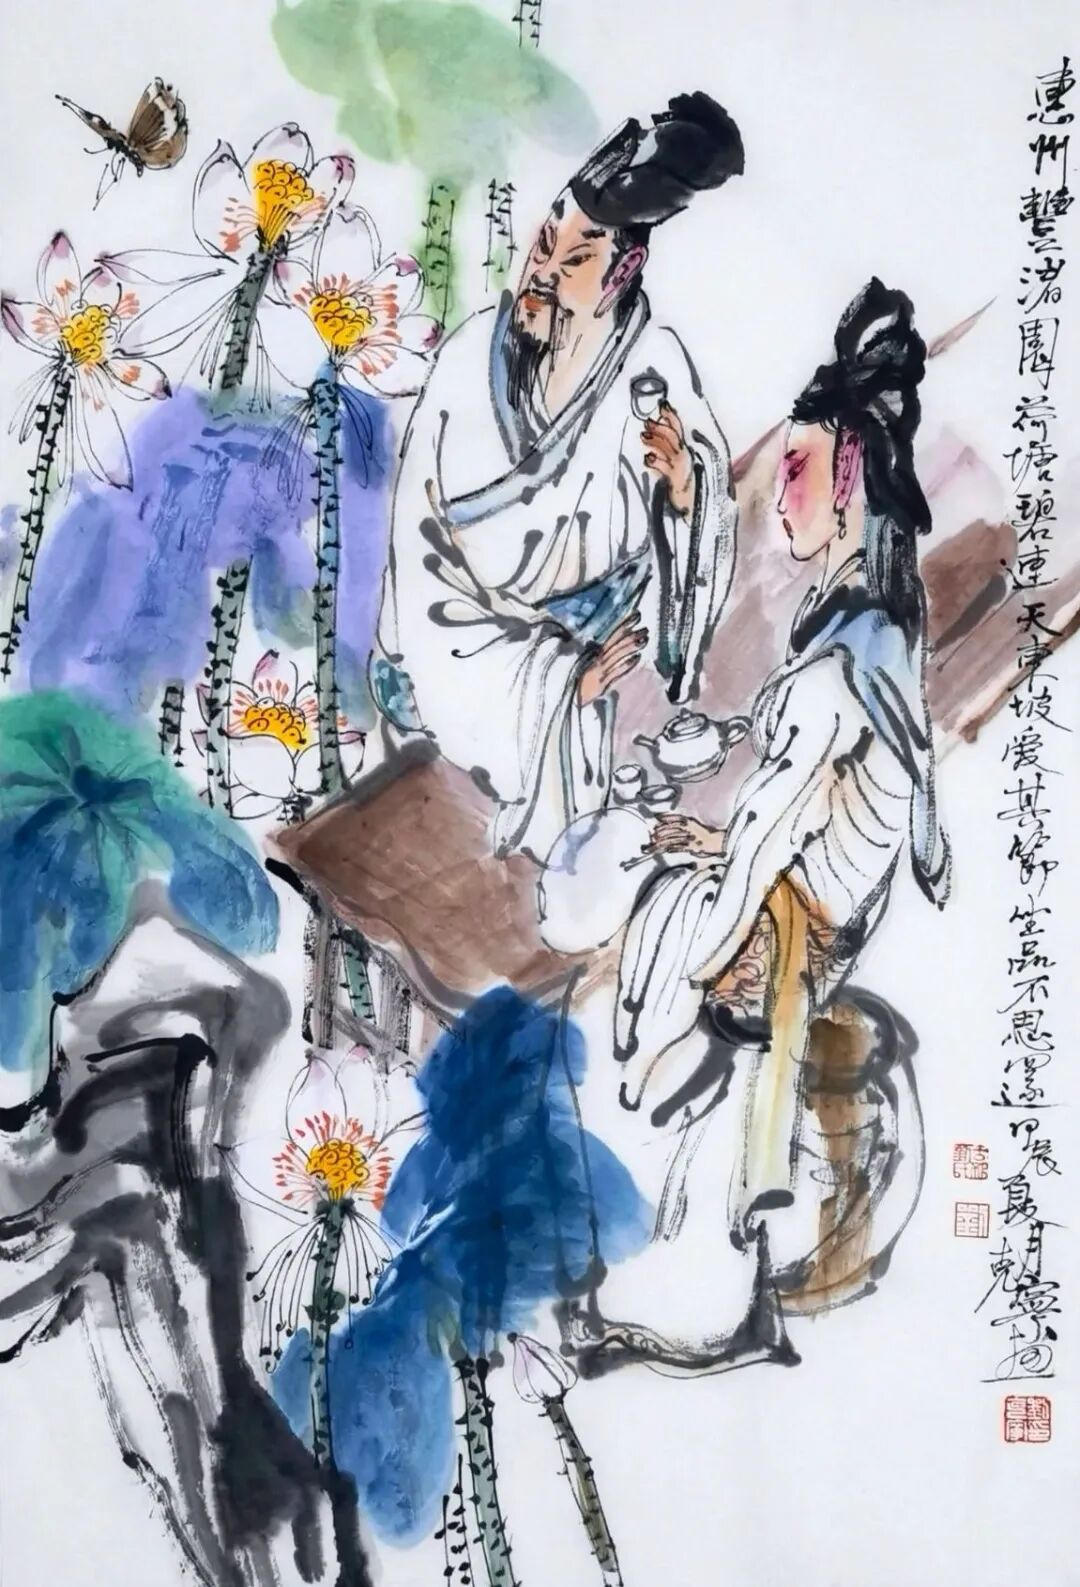 惠州豐渚園荷塘碧連天東坡愛其節坐品不思還甲辰夏月寧
克